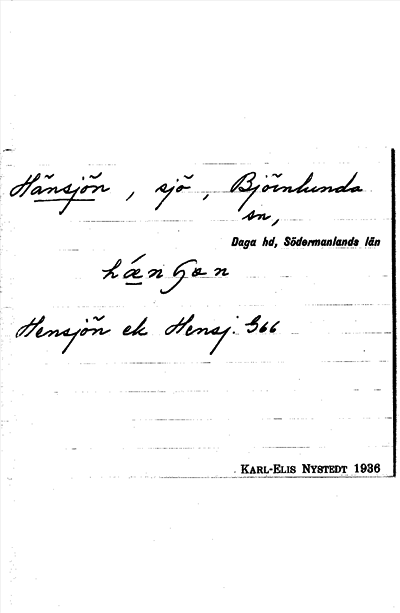 Hänsjön, sjö, Björnlunda
sn,
Daga hd, Södermanlands län
Hensjön ek Hensj. G66
KARL-ELIS NYSTEDT 1936